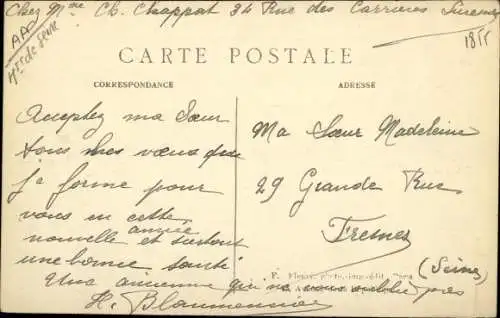 Chez Mme Ch. Chappat 34 Rue des Carrières Suresnes
CARTE POSTALE
CORRESPONDANCE
ADRESSE
Acceptez ma Sœur
tous mes vœux que
je forme pour
vous en cette
nouvelle année et surtout
une bonne santé
Une ancienne qui ne vous oublie pas
Ma Sœur Madeleine
29 Grande Rue
(Seine)